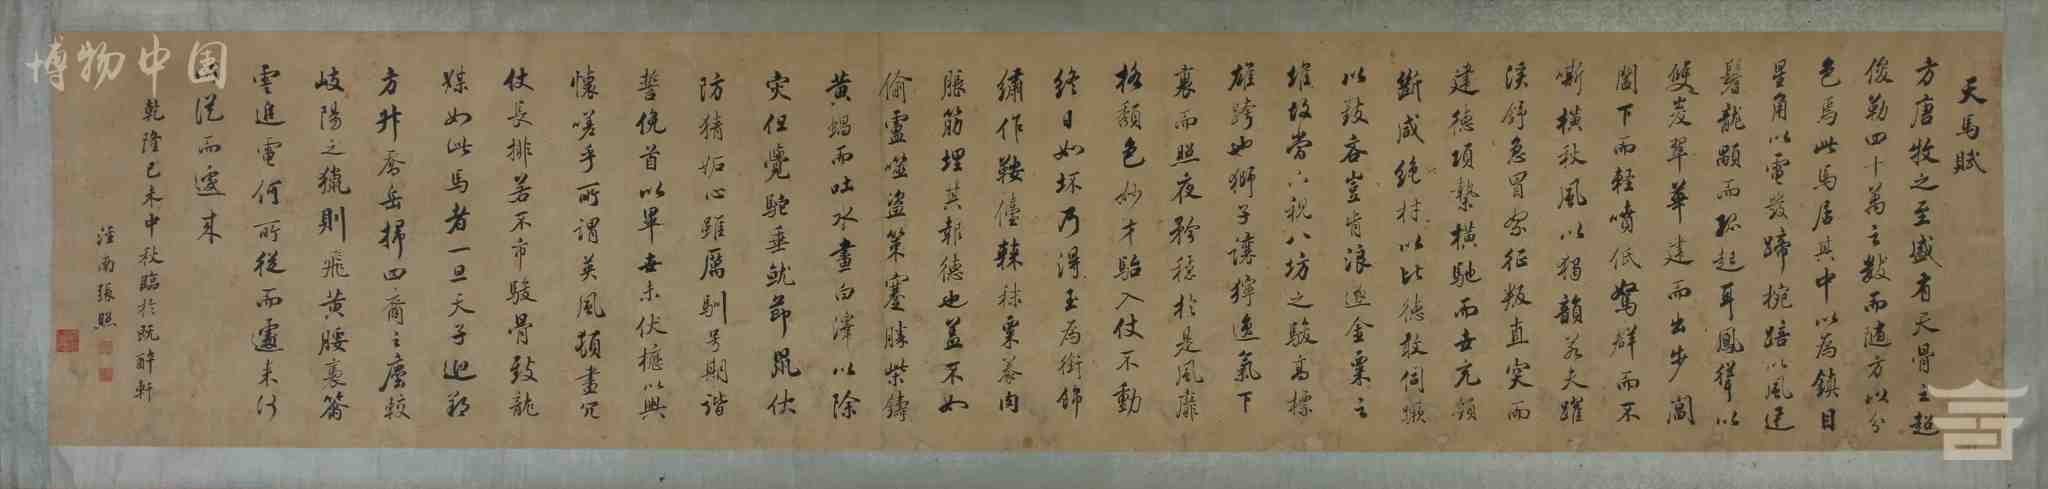 天馬賦
方唐牧之至盛有天骨之超
俊勒四十萬之數而隨方以分
色馬此馬居其中以為鎮目
星角以電發蹄椀踣以風迋
鬐龍顒而孤起耳鳳聳以
雙峙翠華建而出步閶
闔下而輕噴低駑群而不
嘶橫秋風以獨韻若夫躍
溪舒急冒絮征叛直突而
建德項縶橫馳而世充領
斷咸絕材以比德敢伺蹶
以致吝豈肯浪逐金粟之
堆故當下視八坊之駿高標
雄跨也獅子讓獰逸氣下
衰而照夜矜穩於是風靡
格頹色妙才駘入仗不動
終日如坏乃得玉為銜飾
繡作鞍儓棘秣粟養肉
脹筋埋其報德也蓋不如
偷盧噬盜策蹇勝柴鑄
黃蝸而吐水畫白澤以除
灾但覺駝垂就節鼠伏
防猜妬心雖厲馴号期諧
誓俛首以畢世未伏櫪以興
懷嗟乎所謂英風頓盡冗
仗長排若不市駿骨致龍
媒如此馬者一旦天子巡郊
方升喬岳掃四裔之塵較
岐陽之獵則飛黃腰褭籋
雲追電何所從而遽來何
所從而遽來
乾隆己未中秋臨於既醉軒
涇南張照
博物中国